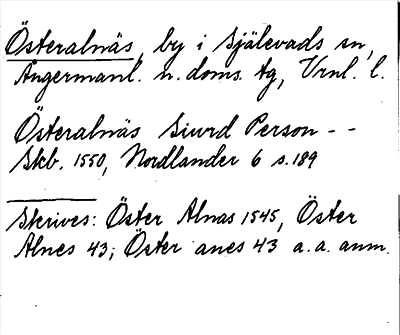 Österalnäs, by i Själevads sn,
Ångermanl. n. doms. tg, Vrnl. l.
Österalnäs Siurd Person - -
Skb. 1550, Nordlander 6 s. 189
Skrives: Öster Alnas 1545, Öster
Alnes 43; Öster anes 43 a. a. anm.